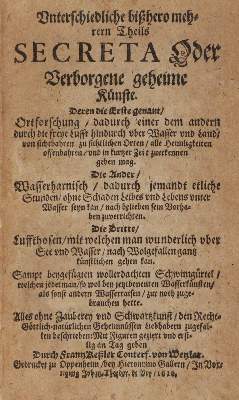 Vnterschiedliche bißhero mehrern Theils
SECRETA Oder
Verborgene geheime
Künste.
Deren die Erste genant/
Ortforschung / dadurch einer dem andern
durch die freye Lufft hindurch vber Wasser vnd Land/
von sichtbahren zu sichtlichen Orten / alle Heimligkeiten
offenbahren / vnd in kurtzer Zeit zuerkennen
geben mag.
Die Ander /
Wasserharnisch / dadurch jemandt etliche
Stunden / ohne Schaden Leibes vnd Lebens vnter
Wasser seyn kan / nach belieben sein Vorhaben
zuverrichten.
Die Dritte /
Luffthosen / mit welchen man wunderlich vber
See vnd Wasser / nach Wolgefallen gang
künstlichen gehen kan.
Sampt beygefügten wollerdachten Schwimgürtel /
welchen jederman / so wol bey
als sonst andern Wasserraisen / zur noth zugebrauchen
hette.
Alles ohne Zauberey vnd Schwartzkunst / den Rechte
Göttlich-natürlichen Geheimnüssen Liebhabern zugefallen
beschrieben: Mit Figuren gezieret vnd erstlich
an Tag geben
Durch Frantz Keßler Conterf. von Wetzlar.
Gedruckt zu Oppenheim / bey Hieronimo Gallern / In
Johan-Theodor. de Bry / 1616.